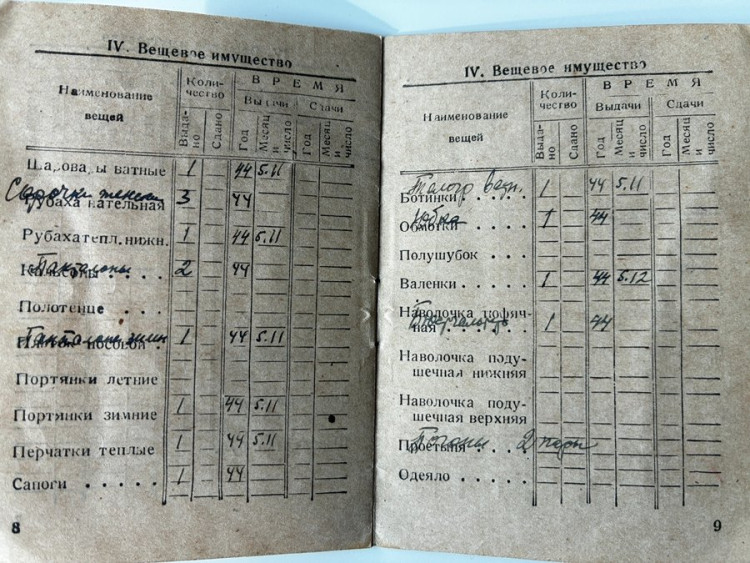 IV. Вещевое имущество
Наименование вещей
Количество
ВРЕМЯ
Выдачи
Сдачи
Выдано
Сдано
Год
Месяц и число
Год
Месяц и число
Шаровары ватные 1 44 5.11
Сорочки женские
Рубаха нательная 3 44
Рубаха тепл. нижн. 1 44 5.11
Панталоны
Кальсоны . . . . 2 44
Полотенце . . .
Панталоны зим
Платок носовой . 1 44 5.11
Портянки летние
Портянки зимние 1 44 5.11
Перчатки теплые 1 44 5.11
Сапоги . . . . . 1 44
8
IV. Вещевое имущество
Наименование вещей
Количество
ВРЕМЯ
Выдачи
Сдачи
Выдано
Сдано
Год
Месяц и число
Год
Месяц и число
Ботинки . . . . 1 44 5.11
Юбка
Обмотки . . . . 1 44
Полушубок . . .
Валенки . . . . . 1 44 5.12
Наволочка тюфяч-
ная . . . . . 1 44
Наволочка поду-
шечная нижняя
Наволочка поду-
шечная верхняя
Погоны 2 пары
Простыня . . . .
Одеяло . . . . .
9